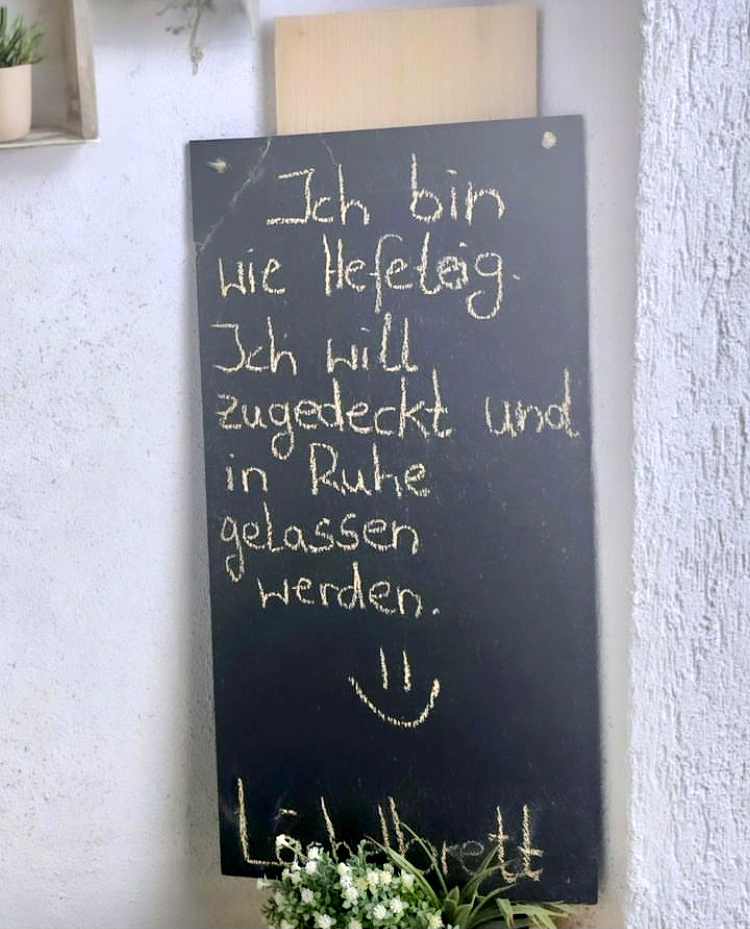 Ich bin
wie Hefeteig.
Ich will
zugedeckt und
in Ruhe
gelassen
werden.
Lächelbrett